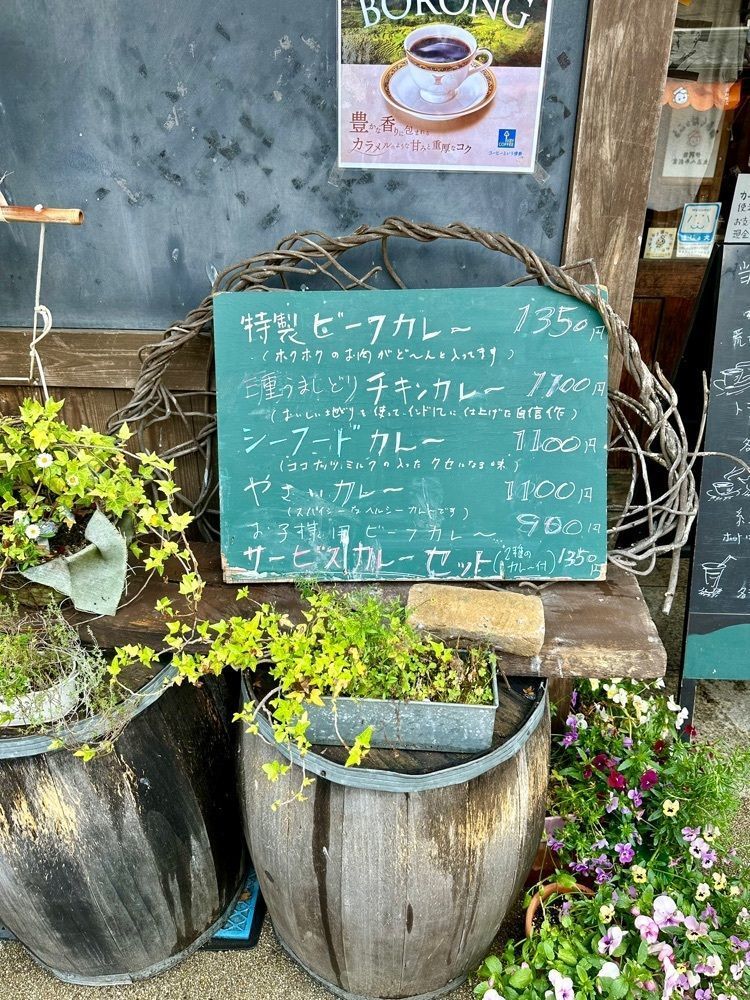 BORONG
豊かな香りに包まれる
カラメルのような甘みと重厚なコク
KEY COFFEE
コーヒーという情熱
特製ビーフカレー 1350円
(ホクホクのお肉がど〜んと入ってます)
うましどり チキンカレー 1100円
シーフードカレー 1100円
(ココナッツミルクの入った クセになる味)
やさいカレー 1100円
(スパイシーなヘルシーカレーです)
お子様用 ビーフカレー 900円
サービスカレーセット(2種のカレー付)1350円